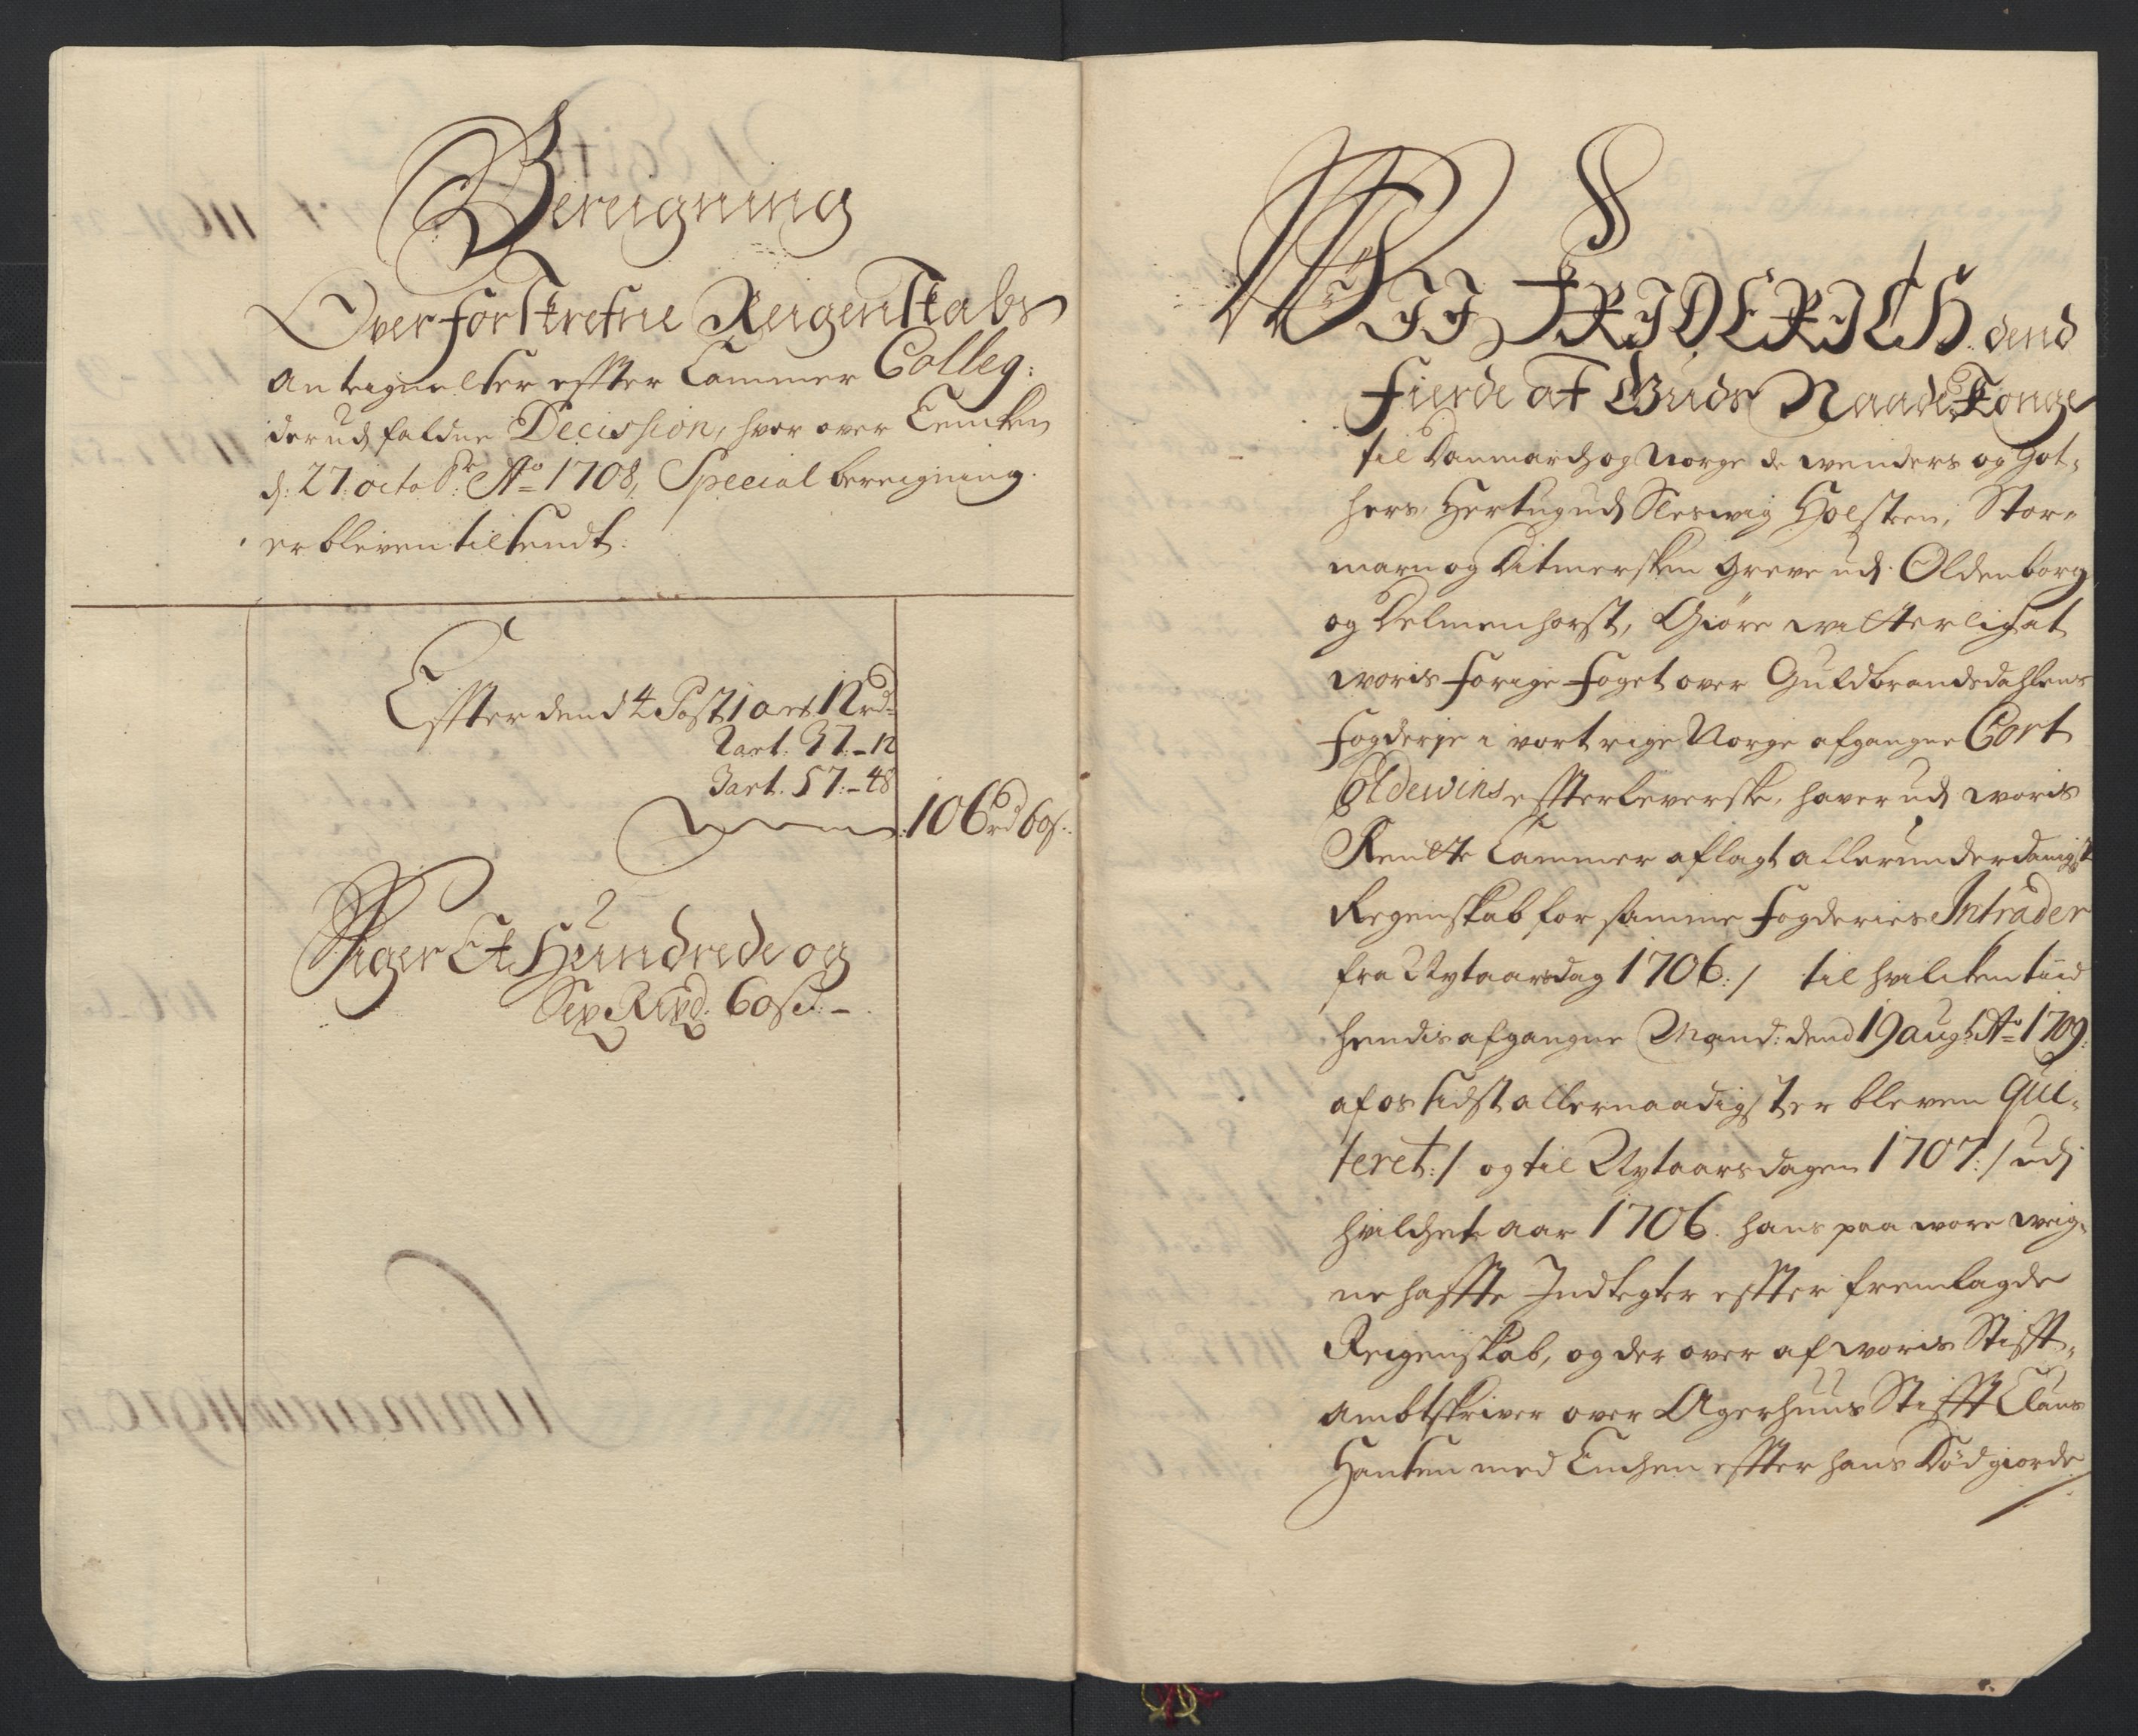 Bereigning
Over forskrefne Reigenskabs
Anteignelser effter Cammer Colleg:
derudj faldne Decission, hvor over Encken
d: 27: octobr: Ao 1708, Special bereigning
er bleven tilsendt.
Effter dend 4 Post 1 art. 12 rd
2 art. 37 - 12
3 art. 57 - 48
106 rd 60 s.
Siger Et Hundrede og
Sex Rixd. 60 s. -
Wii FRIDERICH dend
Fierde af Guds Naade Konge
til Danmarch og Norge de wenders og Got-
hers, Hertug udj Sleswig Holsten, Stor-
marn og Ditmersken Greve udj Oldenborg
og Delmenhorst, Giøre witterligt at
woris forige foget over Guldbrandsdahlens
fogderje i vort rige Norge afgangne Cort
Coldewins effterleverske, haver udj woris
Rentte Cammer aflagt allerunderdanigst
Regenskab for samme fogderies Intrader
fra Nytaarsdag 1706 :/ til hvilcken tiid
hendis afgangne Mand: dend 19 augt: Ao 1709.
af os sidst allernaadigst er bleven qui-
teret :/ og til Nytaarsdagen 1707 :/ udj
hvilchet aar 1706. hans paa wore weig-
ne haffte Indtegter effter fremlagde
Reigenskab, og der over af woris Stifft-
ambtskriver over Agerhuus Stifft Claus
Hansen med Enchen effter hans død giorde